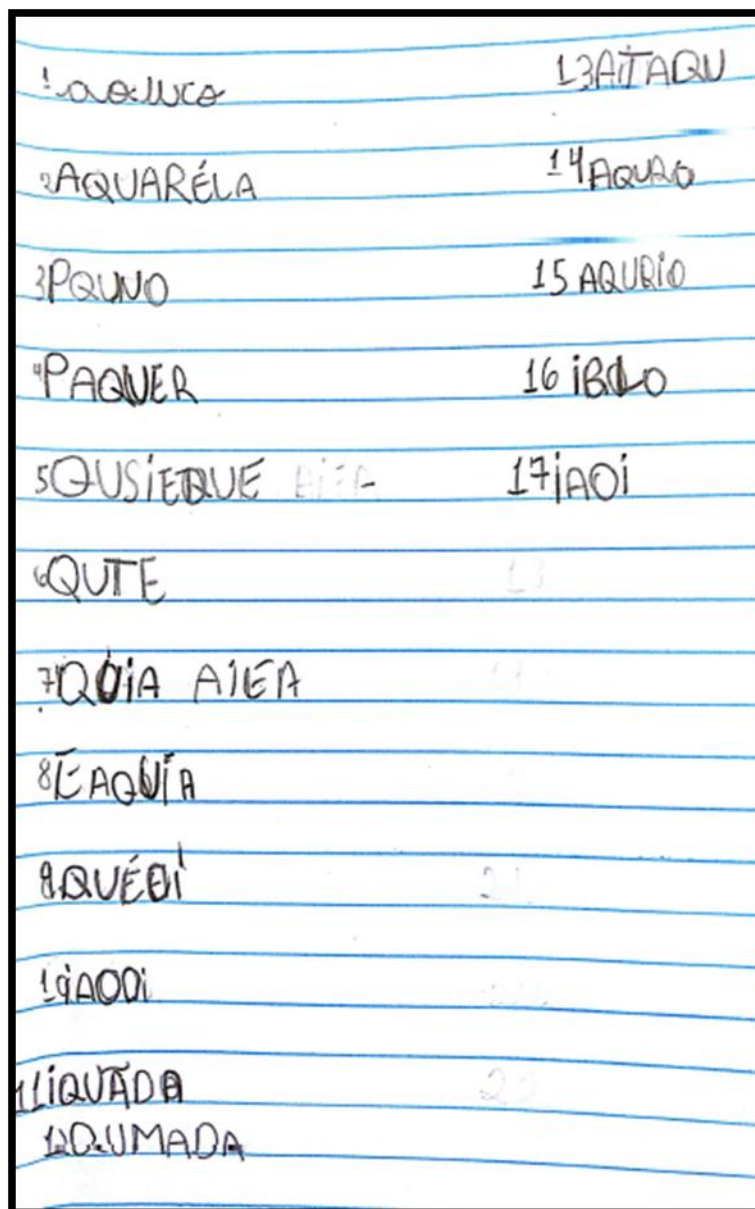 2 AQUARÉLA
3 PQUNO
4 PAQUER
5 QUSIEQUE
6 QUTE
7 QUIA AIEA
8 EAQUIA
9 QUÉOI
11 IQUADA
12 QUMADA
13 AITAQU
14 AQURO
15 AQURIO
16 IBLO
17 IAOI